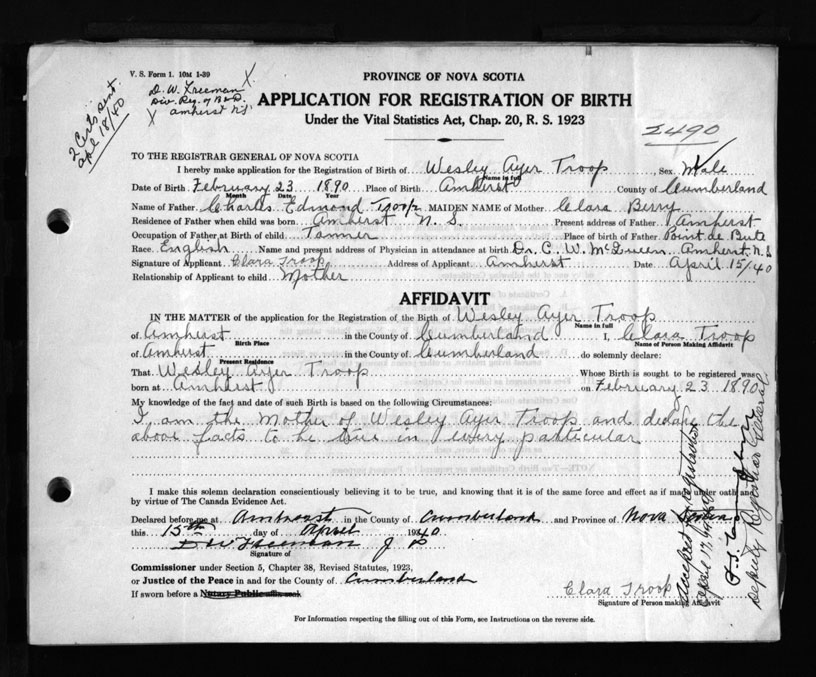 V. S. Form 1. 10M 1-39
D. W. Freeman X
Div. Reg. of B & D.
X Amherst N.S.
2 Certs sent.
Apl 18/40
PROVINCE OF NOVA SCOTIA
APPLICATION FOR REGISTRATION OF BIRTH
Under the Vital Statistics Act, Chap. 20, R. S. 1923
2490
TO THE REGISTRAR GENERAL OF NOVA SCOTIA
I hereby make application for the Registration of Birth of Wesley Ayer Troop, Sex Male
Name in full
Date of Birth February 23 1890 Place of Birth Amherst County of Cumberland
Month Date Year
Name of Father Charles Edmond Troop MAIDEN NAME of Mother Clara Berry
Residence of Father when child was born Amherst N. S. Present address of Father Amherst
Occupation of Father at Birth of child Tanner Place of Birth of Father Point de Bute
Race English Name and present address of Physician in attendance at birth Dr. C. W. McQueen Amherst. N. S
Signature of Applicant Clara Troop Address of Applicant Amherst Date April 15/40
Relationship of Applicant to child Mother
AFFIDAVIT
IN THE MATTER of the application for the Registration of the Birth of Wesley Ayer Troop
Name in full
of Amherst in the County of Cumberland I, Clara Troop
Birth Place Name of Person Making Affidavit
of Amherst in the County of Cumberland do solemnly declare:
Present Residence
That Wesley Ayer Troop Whose Birth is sought to be registered was
born at Amherst on February 23 1890
My knowledge of the fact and date of such Birth is based on the following Circumstances:
I am the Mother of Wesley Ayer Troop and declare the
above facts to be true in every particular
I make this solemn declaration conscientiously believing it to be true, and knowing that it is of the same force and effect as if made under oath and
by virtue of The Canada Evidence Act.
Declared before me at Amherst in the County of Cumberland and Province of Nova Scotia
this 15th day of April 1940
D. W. Freeman J P
Signature of
Commissioner under Section 5, Chapter 38, Revised Statutes, 1923,
or Justice of the Peace in and for the County of Cumberland
If sworn before a Notary Public affix seal
Clara Troop
Signature of Person making Affidavit
For Information respecting the filling out of this Form, see Instructions on the reverse side.
Accepted for registration
April 17, 1940
Deputy Registrar General